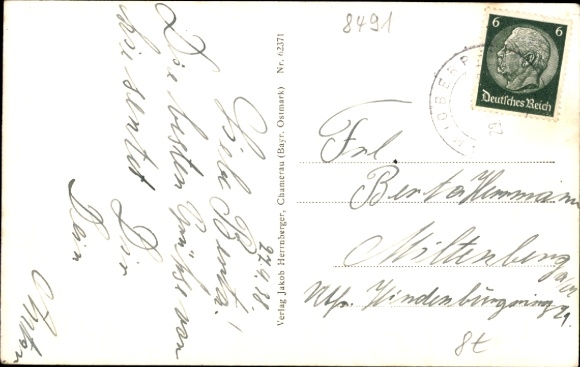 8491
6 6
Deutsches Reich
27.4.38
Liebe Berta!
Die besten Grüße von
hier sendet Dir
Dein
Anton
Verlag Jakob Herrnberger, Chamerau (Bayr. Ostmark) Nr. 62371
Frl.
Berta
Miltenberg
a/M
Hindenburgring
29.
8t